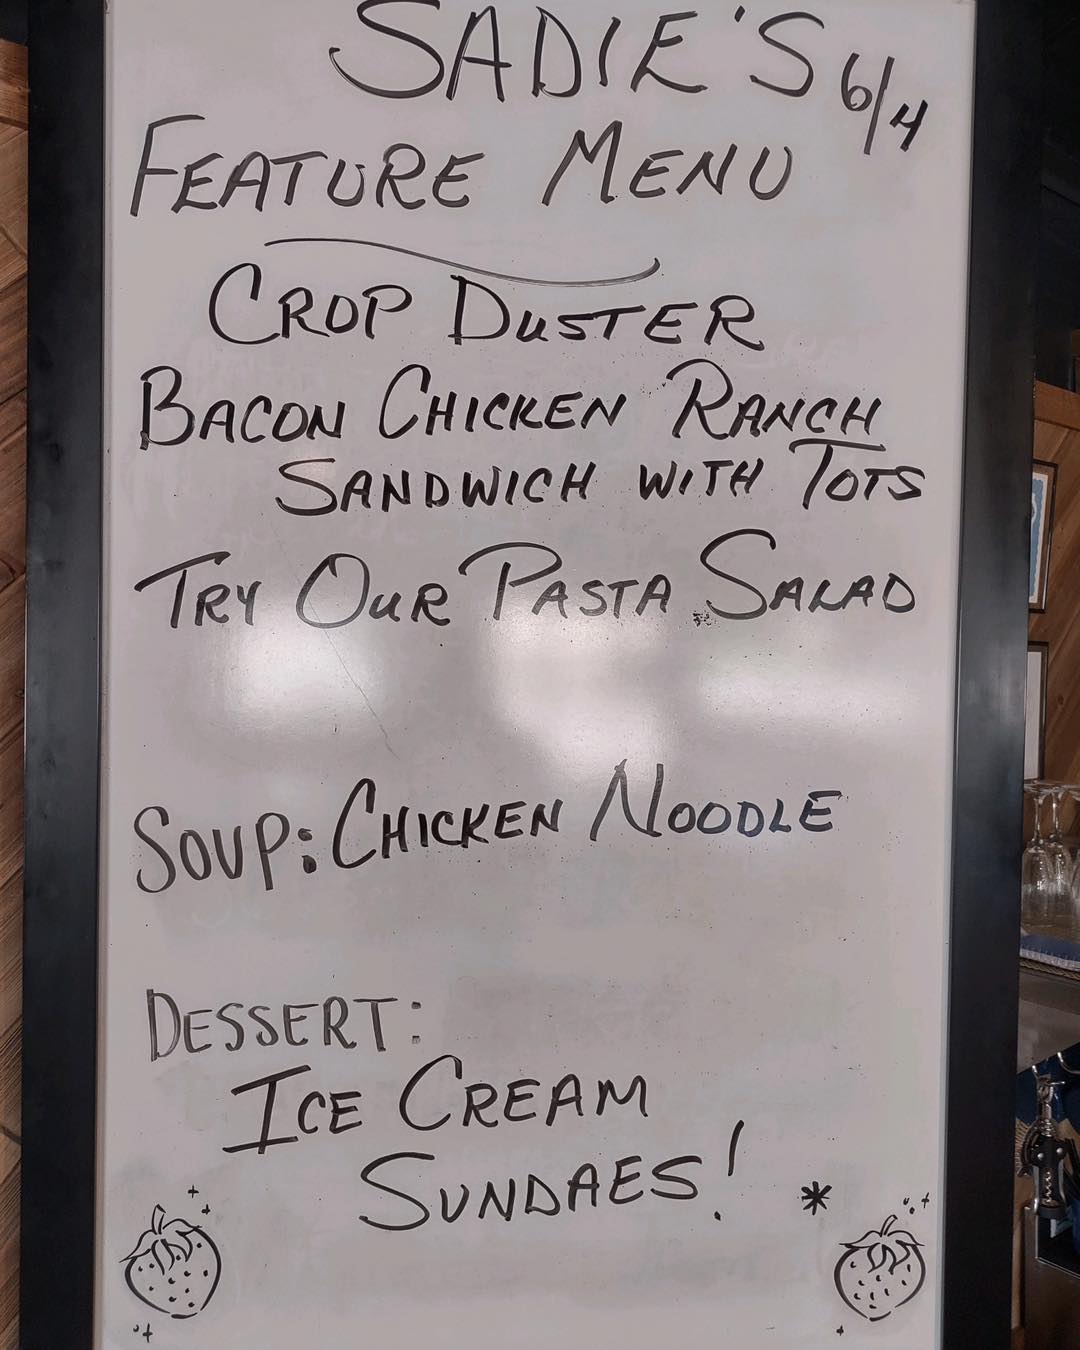 SADIE'S 6/4
FEATURE MENU
CROP DUSTER
BACON CHICKEN RANCH
SANDWICH WITH TOTS
TRY OUR PASTA SALAD
SOUP: CHICKEN NOODLE
DESSERT:
ICE CREAM
SUNDAES! *